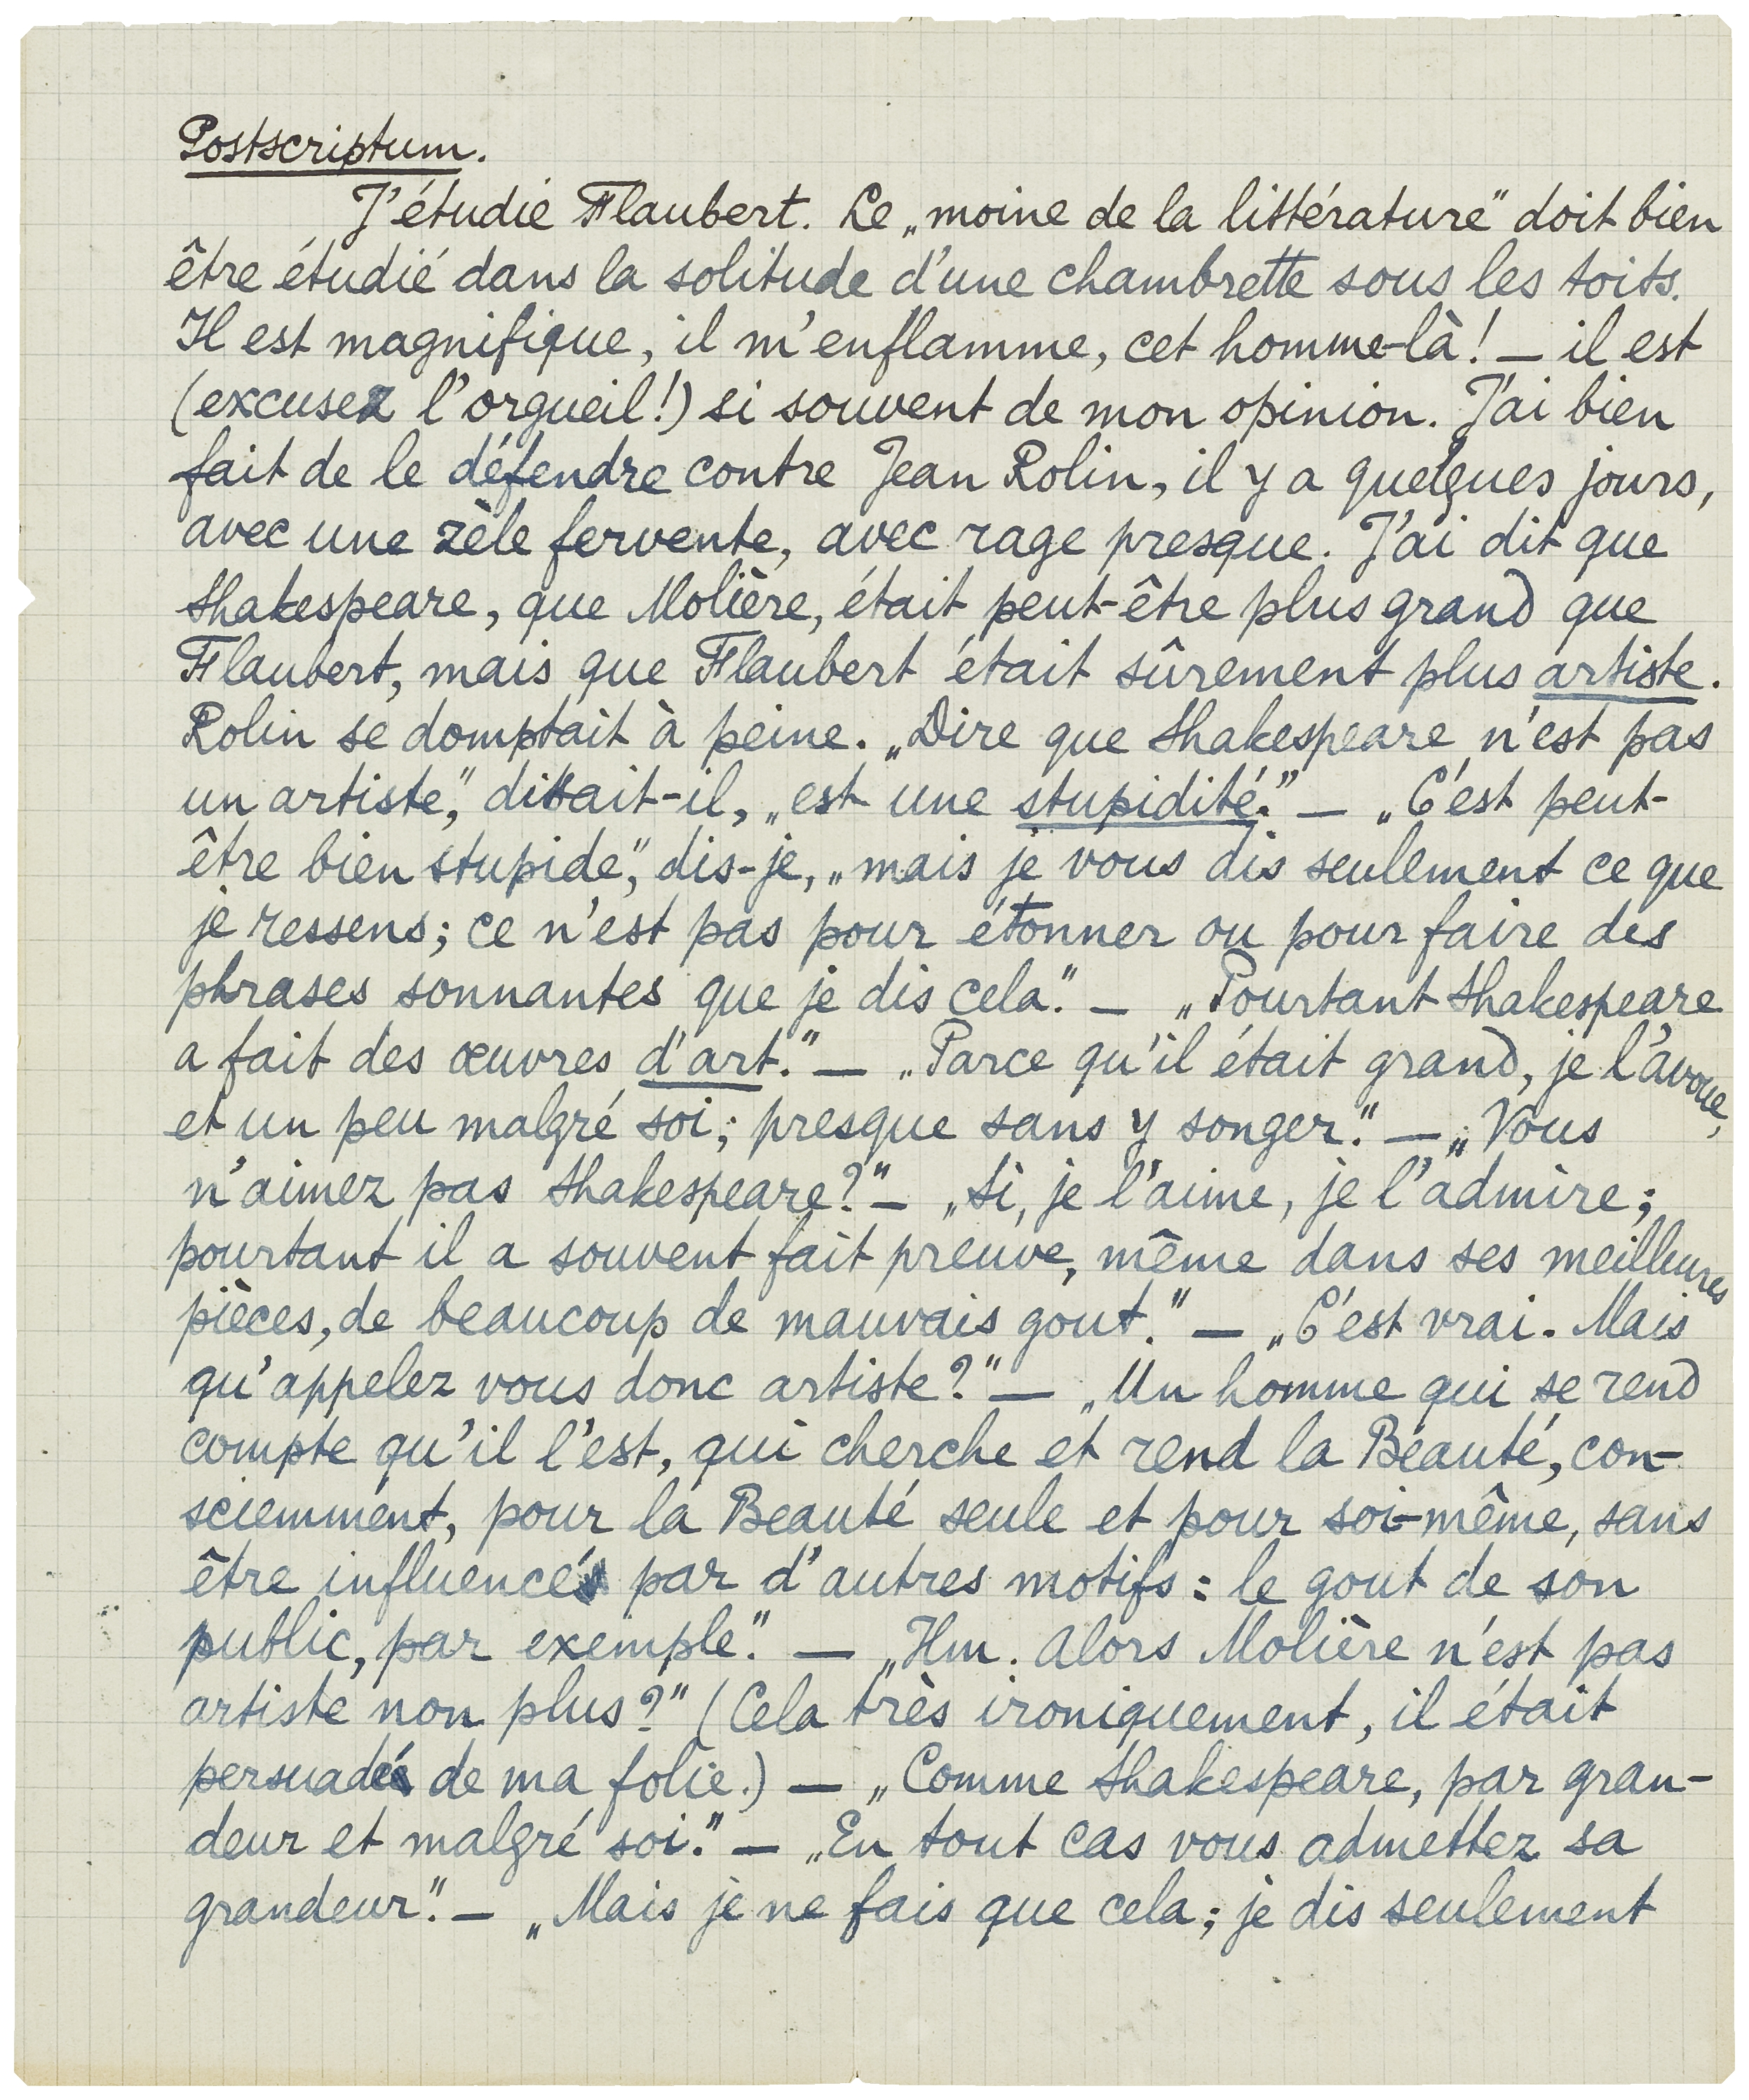 Postscriptum.
J'étudie Flaubert. Le „moine de la littérature" doit bien
être étudié dans la solitude d'une chambrette sous les toits.
Il est magnifique, il m'enflamme, cet homme-là! — il est
(excusez l'orgueil!) si souvent de mon opinion. J'ai bien
fait de le défendre contre Jean Rolin, il y a quelques jours,
avec une zèle fervente, avec rage presque. J'ai dit que
Shakespeare, que Molière, était peut-être plus grand que
Flaubert, mais que Flaubert était sûrement plus artiste.
Rolin se domptait à peine. „Dire que Shakespeare n'est pas
un artiste," dittait-il, „est une stupidité." — „C'est peut-
être bien stupide," dis-je, „mais je vous dis seulement ce que
je ressens; ce n'est pas pour étonner ou pour faire des
phrases sonnantes que je dis cela." — „Pourtant Shakespeare
a fait des œuvres d'art." — „Parce qu'il était grand, je l'avoue,
et un peu malgré soi; presque sans y songer." — „Vous
n'aimez pas Shakespeare?" — „Si, je l'aime, je l'admire;
pourtant il a souvent fait preuve, même dans ses meilleures
pièces, de beaucoup de mauvais gout." — „C'est vrai. Mais
qu'appelez vous donc artiste?" — „Un homme qui se rend
compte qu'il l'est, qui cherche et rend la Beauté, con-
sciemment, pour la Beauté seule et pour soi-même, sans
être influencé par d'autres motifs: le gout de son
public, par exemple." — „Hm. Alors Molière n'est pas
artiste non plus?" (Cela très ironiquement, il était
persuadé de ma folie.) — „Comme Shakespeare, par gran-
deur et malgré soi." — „En tout cas vous admettez sa
grandeur." — „Mais je ne fais que cela; je dis seulement